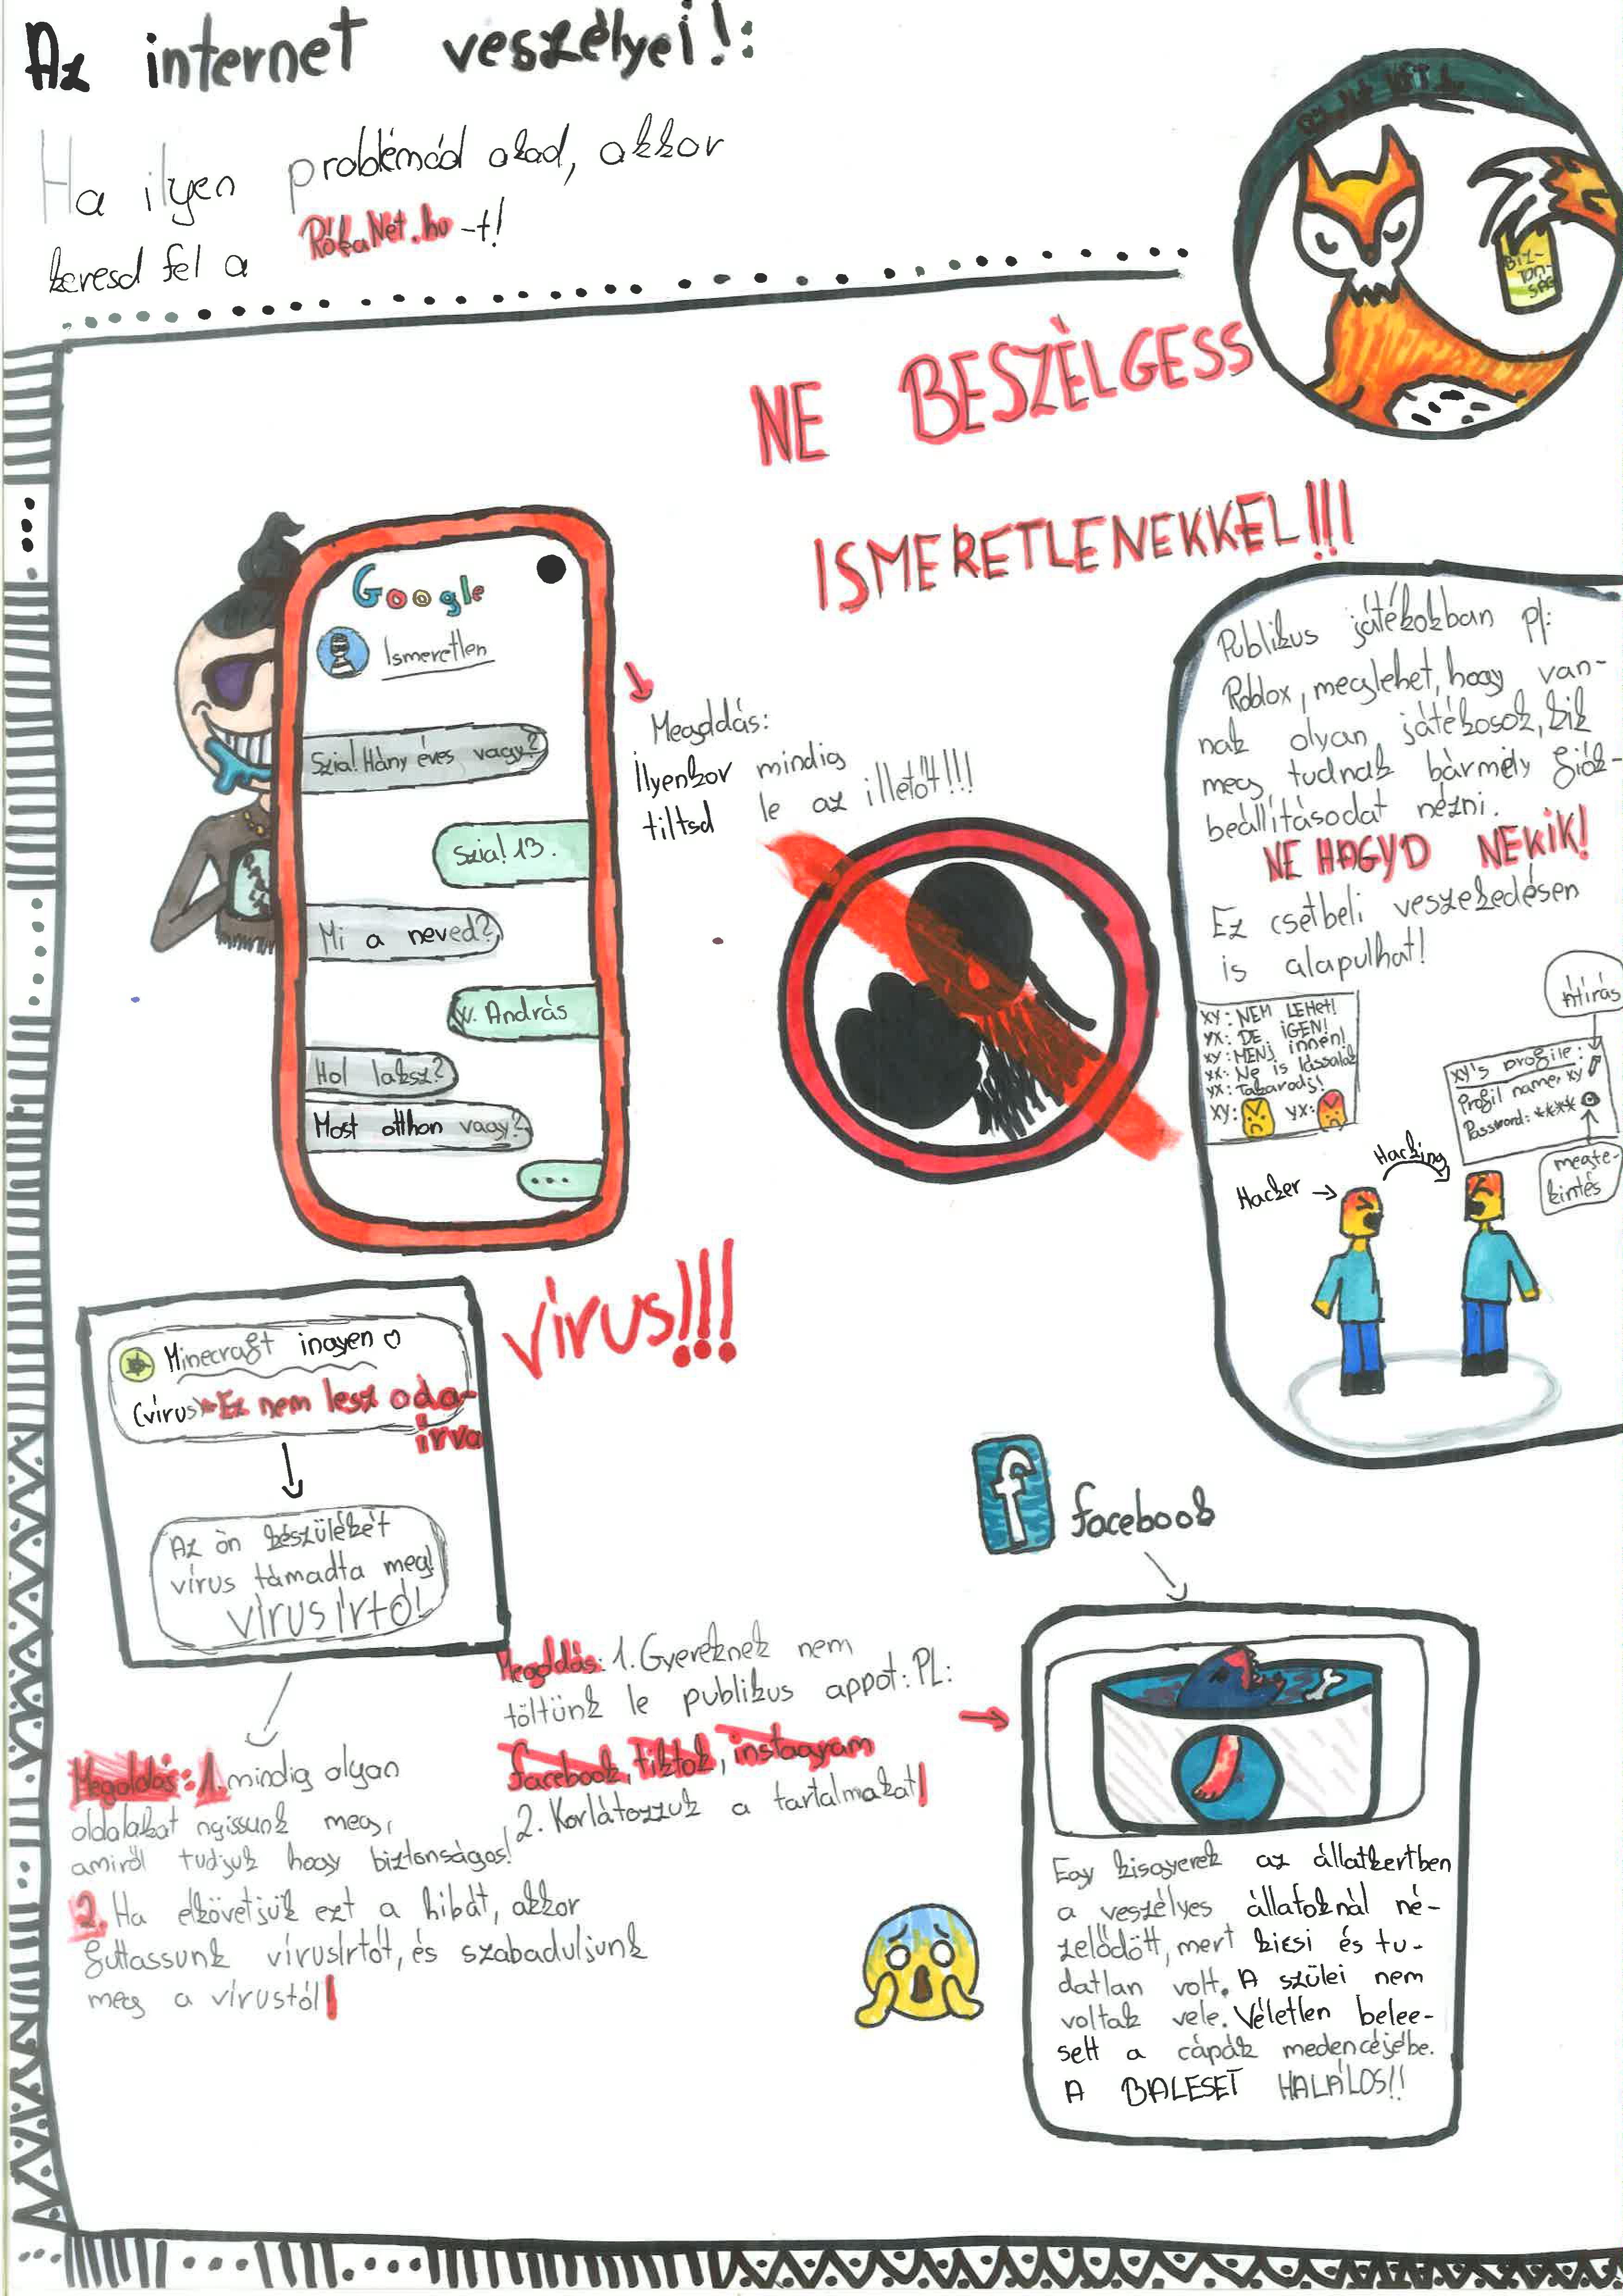 Az internet veszélyei!:
Ha ilyen problémád akad, akkor
keresd fel a RókaNet.hu-t!
BIZ-
TON-
SÁG
NE BESZÈLGESS
ISMERETLENEKKEL!!!
Google
Ismeretlen
Szia! Hány éves vagy?
Szia! 13.
Mi a neved?
V. András
Hol laksz?
Most otthon vagy?
...
Megoldás:
Ilyenkor mindig
tiltsd le az illetőt!!!
Publikus játékokban Pl:
Roblox, meglehet, hogy van-
nak olyan játékosok, kik
meg tudnak bármely fiók-
beállításodat nézni.
NE HAGYD NEKIK!
Ez csetbeli veszekedésen
is alapulhat!
xy: NEM LEHet!
yx: DE IGEN!
xy: MENJ innen!
yx: Ne is lássalak
yx: Takarodj!
xy: yx:
átírás
xy's profile:
Profil name: xy
Password: ****
megte-
kintés
Hacker
Hacking
vírus!!!
Minecraft ingyen
(vírus) Ez nem lesz oda-
írva
Az ön készülékét
vírus támadta meg!
vírusírtó!
Megoldás: 1. mindig olyan
oldalakat nyissunk meg,
amiről tudjuk hogy biztonságos!
2. Ha elkövetjük ezt a hibát, akkor
futtassunk vírusírtót, és szabaduljunk
meg a vírustól!
Megoldás: 1. Gyereknek nem
töltünk le publikus appot: PL:
facebook, tiktok, instagram
2. Korlátozzuk a tartalmakat!
f facebook
Egy kisgyerek az állatkertben
a veszélyes állatoknál né-
zelődött, mert kicsi és tu-
datlan volt. A szülei nem
voltak vele. Véletlen belee-
sett a cápák medencéjébe.
A BALESET HALÁLOS!!